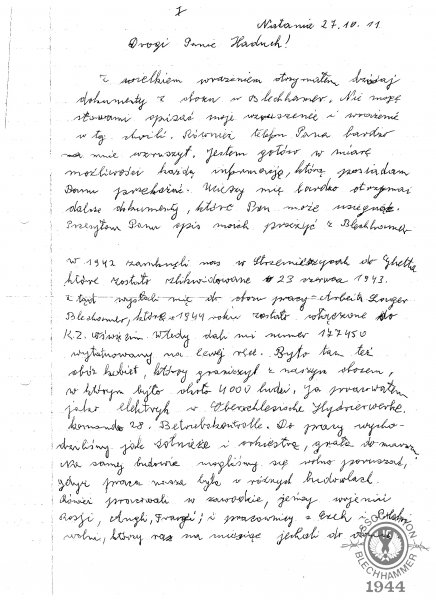 I
Natania 27.10.11
Drogi Panie Haduch!
Z wielkiem wrażeniem otrzymałem dzisiaj
dokumenty z obozu w Blechhamer. Nie mogę
słowami opisać moje wzruszenie i wrażenie
w tej chwili. Również telefon Pana bardzo
mnie wzruszył. Jestem gotów w miarę
możliwości każdą informację, którą posiadam
Panu przekazać. Cieszy mię bardzo otrzymać
dalsze dokumenty, które Pan może uzyskać.
Przesyłam Panu opis moich przeżyć z Blechhamer
W 1942 zamknęli nas w Strzemieszycach do Ghetta
które zostało zlikwidowane 23 czerwca 1943.
Z tąd wysłali mię do obozu pracy - Arbeits Lager
Blechamer, który 1944 roku został włączone do
K.Z. Oświęcim. Wtedy dali mi numer 177450
wytatuowany na lewej ręce. Było tam też
obóz kobiet, który graniczył z naszym obozem,
w którym było około 4000 ludzi. Ja pracowałem
jako elektryk w Oberschlesische Hydrierwerke,
komando 28. Betriebskontrolle. Do pracy wycho-
dziliśmy jak żołnierze i orkiestra, grała do marszu.
Na samej budowie mogliśmy się wolno poruszać,
gdyż praca nasza była w różnych budowlach.
Również pracowali w zawodzie, jeńcy wojenni
Rosji, Anglii, Francji, i pracownicy z Czech i Polski
wolni, którzy raz na miesiąc jechali do
ASSOCIATION
BLECHHAMMER
1944